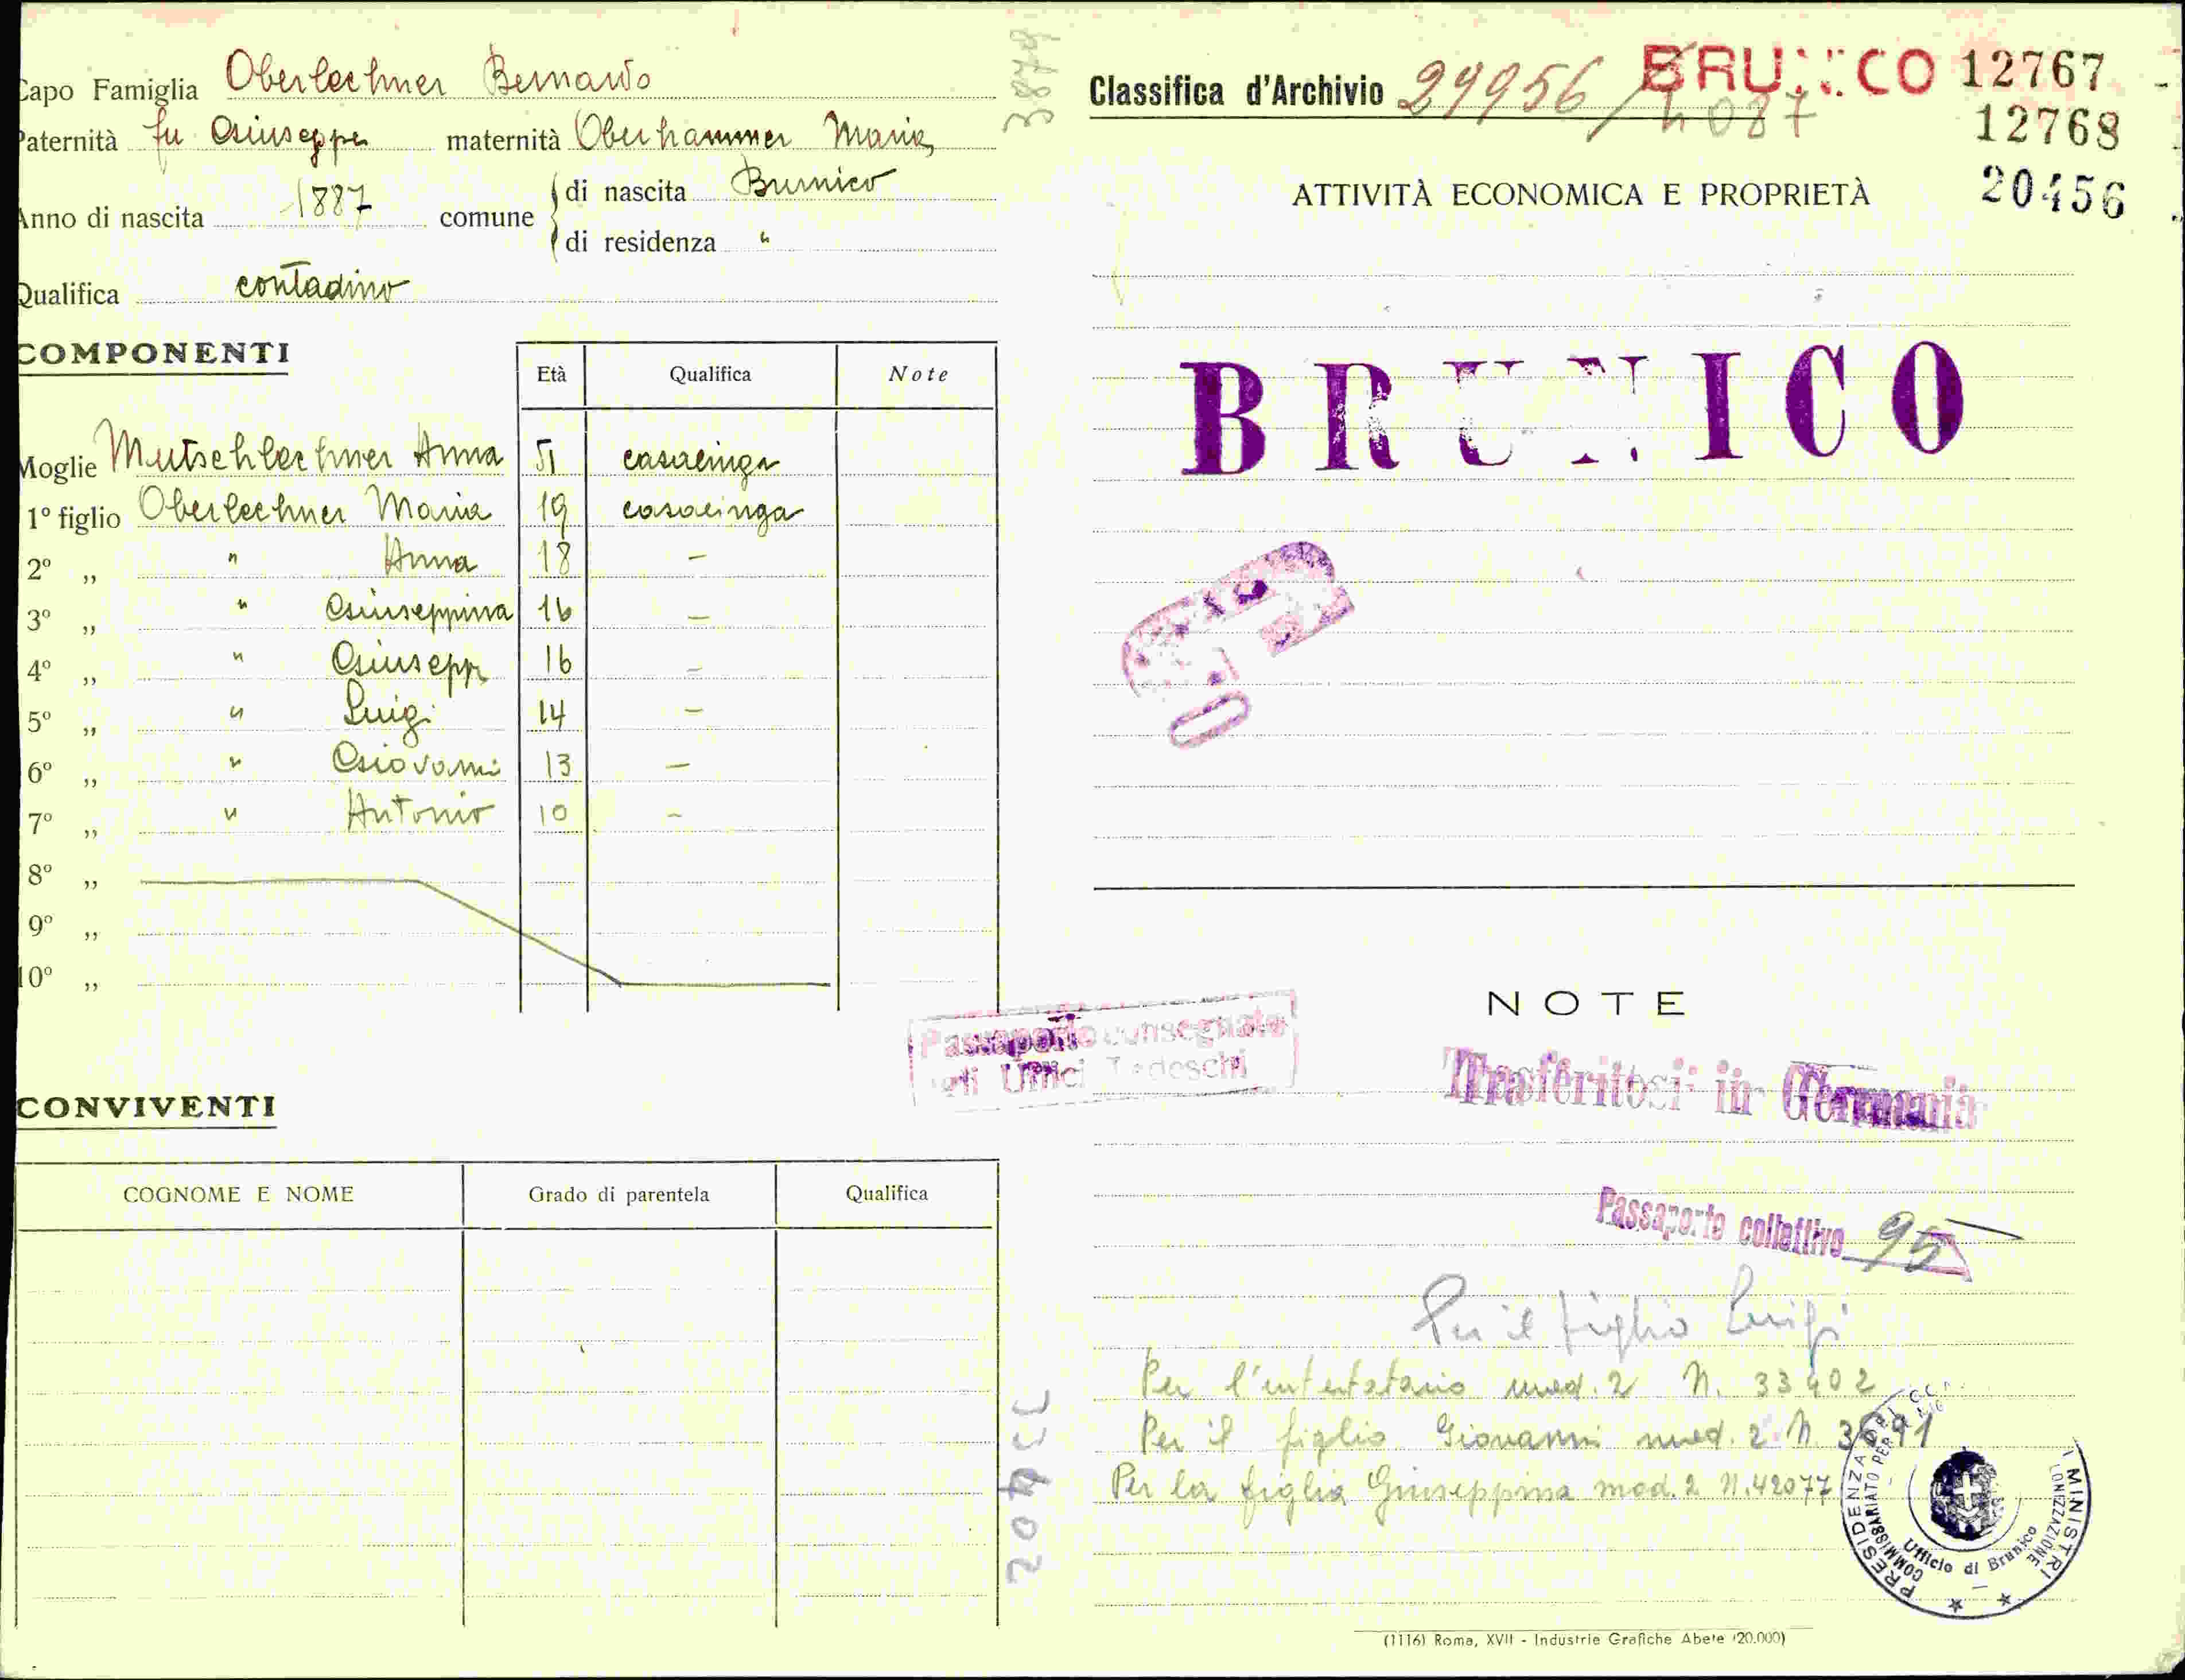 Capo Famiglia Oberlechner Bernardo
Paternità fu Giuseppe maternità Oberhammer Maria
Anno di nascita 1887 comune di nascita Brunico
di residenza "
Qualifica contadino
COMPONENTI
Età Qualifica Note
Moglie Mutschlechner Anna 51 casalinga
1° figlio Oberlechner Maria 19 casalinga
2° ,, " Anna 18 —
3° ,, " Giuseppina 16 —
4° ,, " Giusepp 16 —
5° ,, " Luigi 14 —
6° ,, " Giovanni 13 —
7° ,, " Antonio 10 —
8° ,,
9° ,,
10° ,,
Passaporto consegnato
agli Uffici Tedeschi
CONVIVENTI
COGNOME E NOME Grado di parentela Qualifica
38778
33402
Classifica d'Archivio 29956/4087 BRUNICO 12767
12768
20456
ATTIVITÀ ECONOMICA E PROPRIETÀ
BRUNICO
NOTE
Trasferitosi in Germania
Passaporto collettivo 95
Per il figlio Luigi
Per l'intestatario mod. 2 N. 33402
Per il figlio Giovanni mod. 2 N.
Per la figlia Giuseppina mod. 2 N. 42077
PRESIDENZA DEL MINISTRI
COMMISSARIATO PER
Ufficio di Brunico
(1116) Roma, XVII - Industrie Grafiche Abete (20.000)